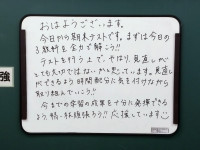 おはようございます。
今日から期末テストです。まずは今日の
3教科を全力で解こう!!
テストを行う上で、やはり、見直しがとても大切ではないかと思っています。見直し
ができるよう、時間配分に気を付けながら
取り組んでいこう!!
今までの学習の成果を十分に発揮できる
よう、精一杯頑張ろう!! 応援しています
強